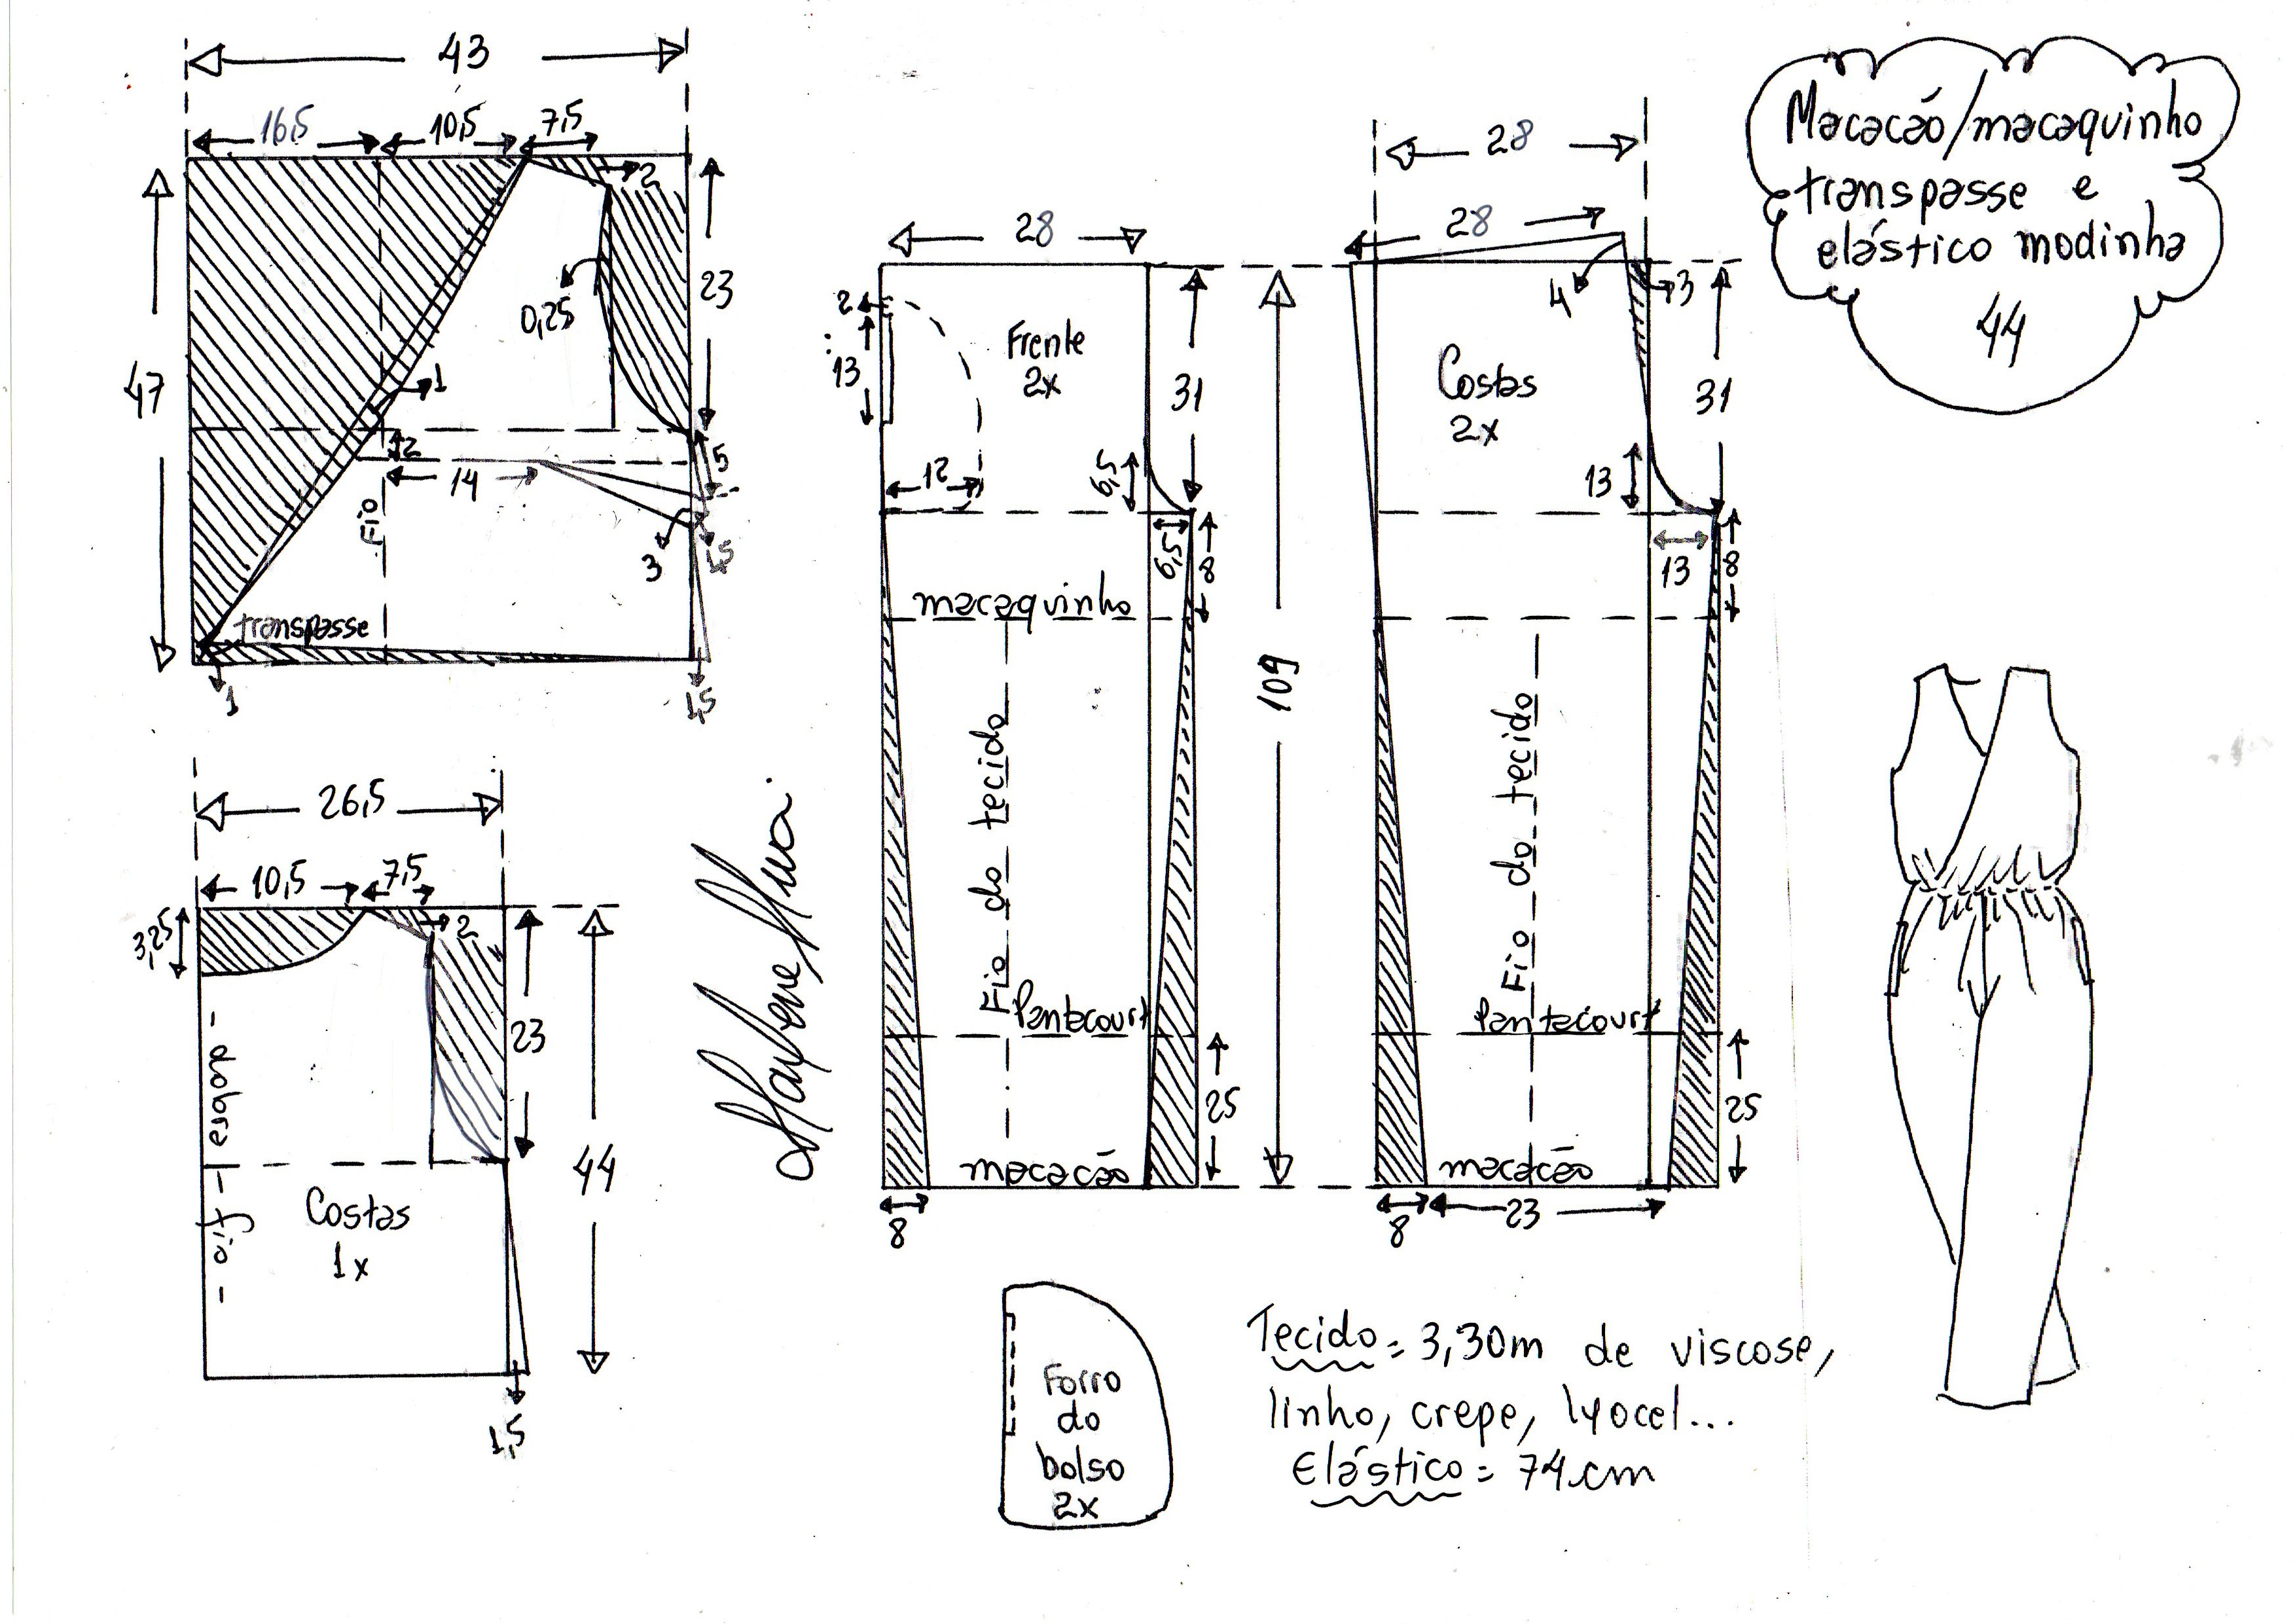 43
16,5 10,5 7,5
2
47
23
0,25
1
2
5
14
Fio
3
1,5
transpasse
1
1,5
26,5
10,5 7,5
3,25
2
23
44
dobra
fio
Costas
1x
1,5
28
2
13
Frente
2x
31
12
6,5
6,5
8
macaquinho
109
Fio do tecido
Pantacourt
25
macacão
8
28
28
4
3
Costas
2x
31
13
13
8
Fio do tecido
Pantacourt
25
macacão
8
23
Macacão/macaquinho
transpasse e
elástico modinha
44
Forro
do
bolso
2x
Tecido = 3,30m de viscose,
linho, crepe, lyocel...
Elástico = 74cm